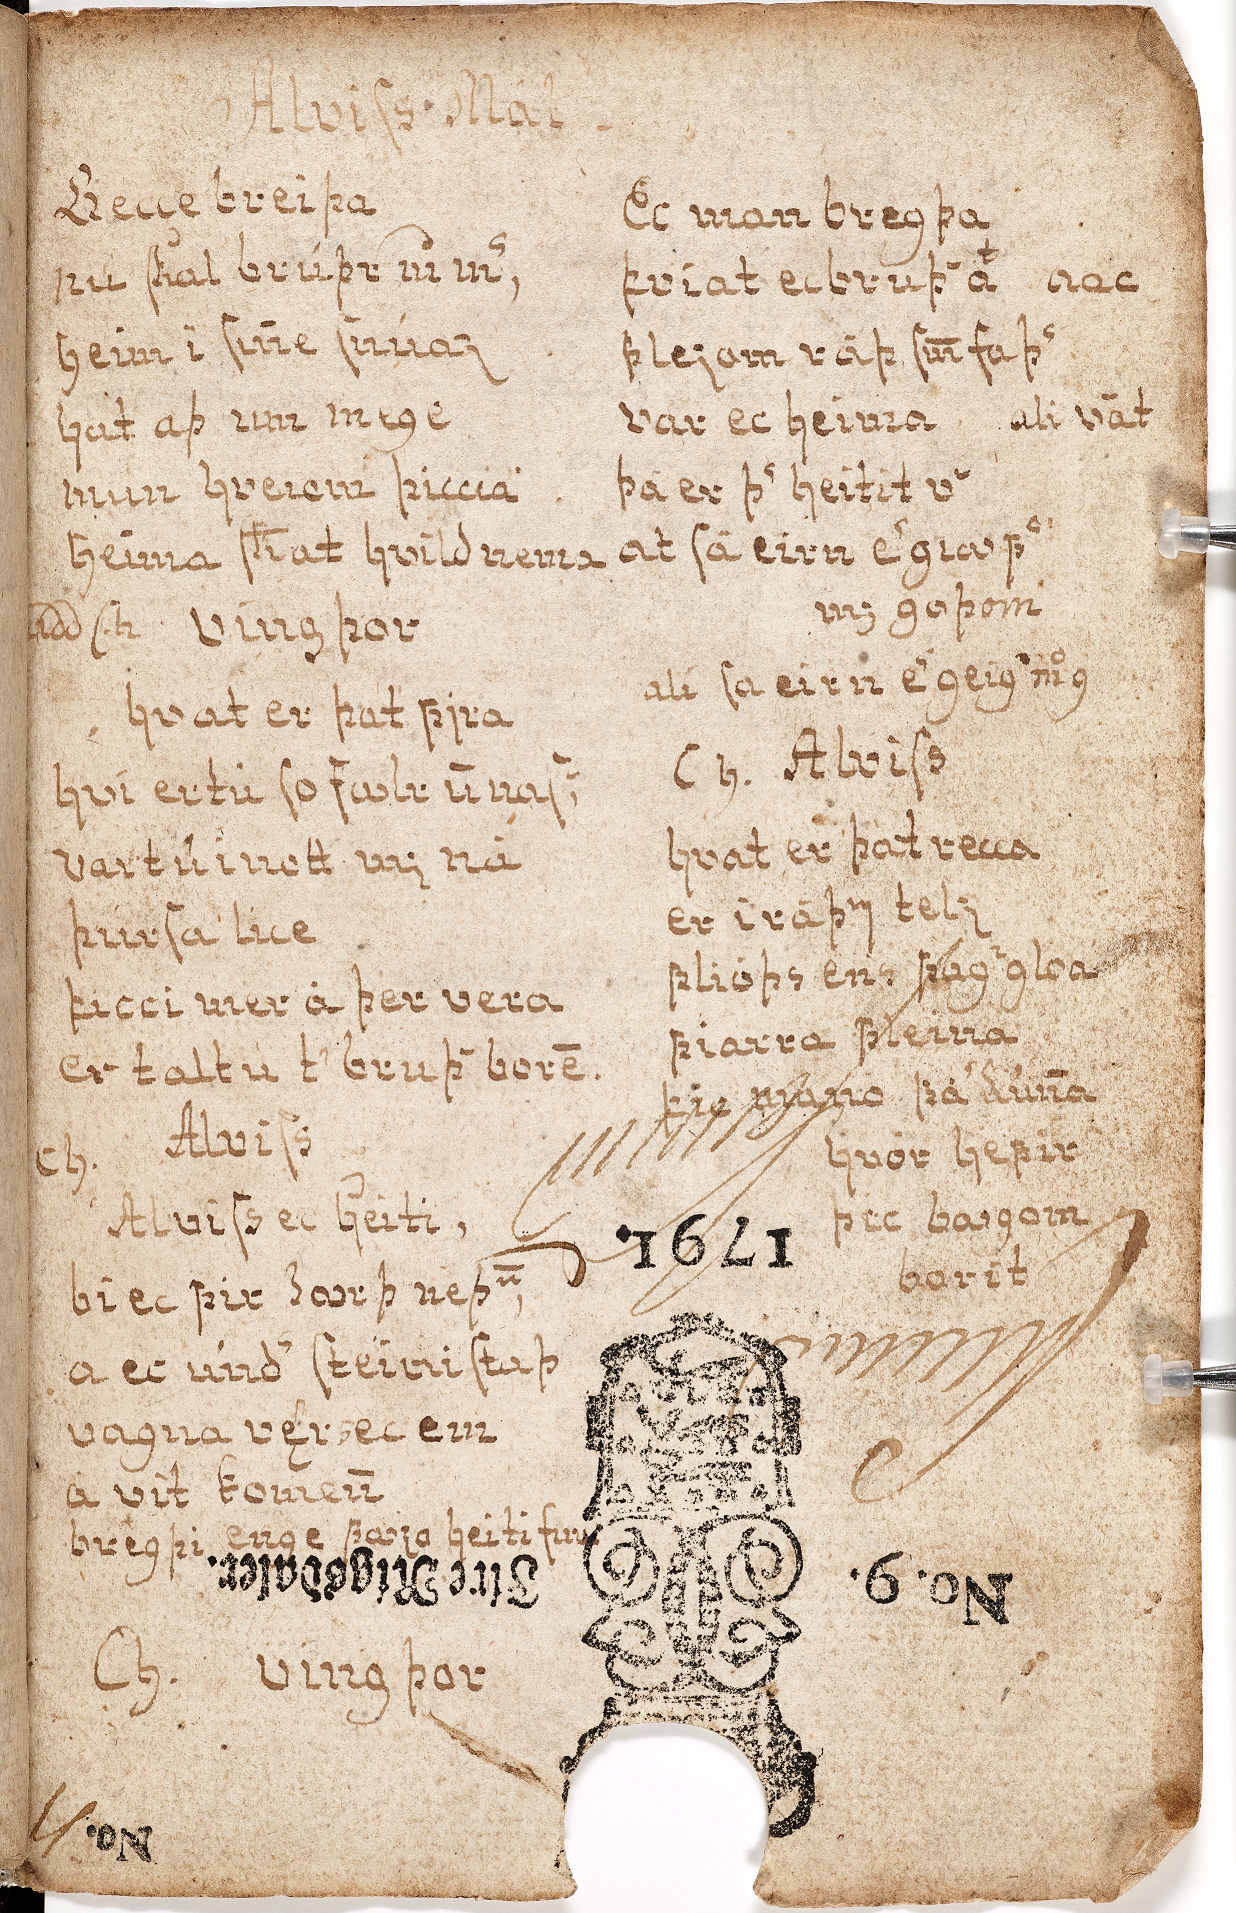 Alviss Mál
Beccе breiþa
nu skal brúþr m̄ m̃s,
heim i sinē snúaz
hat aþ um mege
mun hveiom þiccia
heima skat hvild nema
add Ch Ving þor
hvat er þat fira
hví ertu so fꜹlr ūnas,
vartu inott mz ná
þursa lice
þicci mer á þer vera
er taltu t' bruþ' borē.
Ch. Alviss
Alviss ec heiti,
bi ec fir iꜹrþ neþ̄n,
a ec und' steini staþ
vagna vers ec em
á vit komen̄
bregþi enge fꜹzo heiti
Ch. Ving þor
Ec man bregþa
þviat ec bruþ' át aac
flezom ráþ sm̄ faþs
var ec heima ali vāt
þá er þ's heitit v'
at sá eirn e' giꜹf
mz goþom
ali sa eirn e'
Ch. Alviss
hvat er þat recca
er i ráþm telz
flióþs ens fag' gloa
fiarra fleina
þic þá kun̄a
hvór hefir
þic bꜹgom
borit
1791.
No. 9.
Fire Rigsdaler.
No.